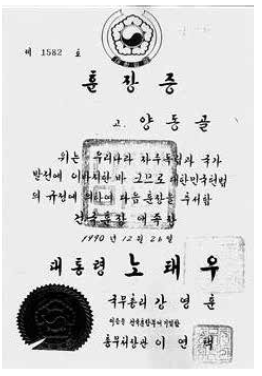 제 1582 호
훈장증
고. 양동골
위는 우리나라 자주독립과 국가
발전에 이바지한 바 크므로 대한민국헌법
의 규정에 의하여 다음 훈장을 추서함
건국훈장 애족장
1990 년 12 월 26 일
대통령 노태우
국무총리 강영훈
이 증을 건국훈장부에 기입함
총무처장관 이연택